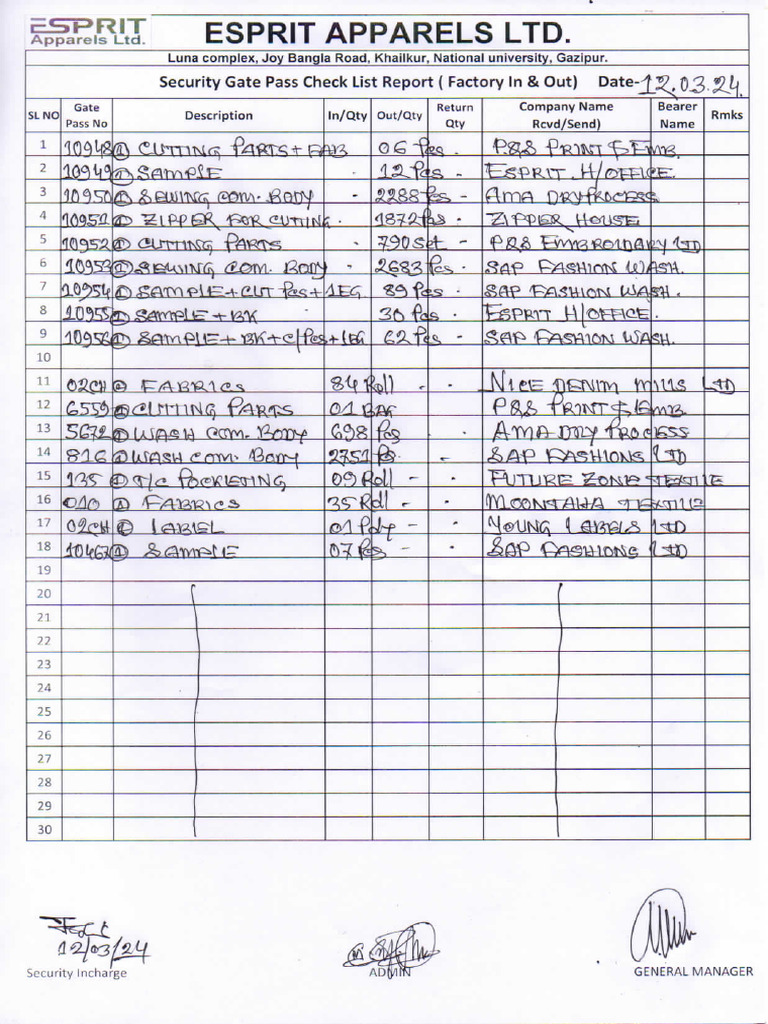 ESPRIT
Apparels Ltd.
ESPRIT APPARELS LTD.
Luna complex, Joy Bangla Road, Khailkur, National university, Gazipur.
Security Gate Pass Check List Report ( Factory In & Out) Date-12.03.24
SL NO Gate Pass No Description In/Qty Out/Qty Return Qty Company Name Rcvd/Send) Bearer Name Rmks
1 10948 ① CUTTING PARTS + FAB 06 Pcs - P&S PRINT & EMB.
2 10949 ① SAMPLE - 12 Pcs - ESPRIT H/OFFICE.
3 10950 ① SEWING COM. BODY - 2288 Pcs - AMA DRY PROCESS
4 10951 ① ZIPPER FOR CUTING - 1872 Pcs - ZIPPER HOUSE
5 10952 ① CUTTING PARTS - 790 Set - P&S EMBROIDARY LTD
6 10953 ① SEWING COM. BODY - 2683 Pcs - SAP FASHION WASH.
7 10954 ① SAMPLE + CUT Pcs + LEG - 89 Pcs - SAP FASHION WASH.
8 10955 ① SAMPLE + BK - 30 Pcs - ESPRIT H/OFFICE.
9 10956 ① SAMPLE + BK + C/Pcs + LEG - 62 Pcs - SAP FASHION WASH.
10
11 02CH FABRICS 84 Roll - - NICE DENIM MILLS LTD
12 6559 CUTTING PARTS 01 BAG P&S PRINT & EMB
13 5672 WASH COM. BODY 698 Pcs - AMA DRY PROCESS
14 816 WASH COM. BODY 2751 Ps - SAP FASHIONS LTD
15 135 T/C POCKETING 09 Roll - - FUTURE ZONE TEXTILE
16 010 FABRICS 35 Roll - - MOONTAHA TEXTILE
17 02CH LABEL 01 - - YOUNG LABELS LTD
18 10467 ① SAMPLE 07 Pcs - - SAP FASHIONS LTD
19
20
21
22
23
24
25
26
27
28
29
30
12/03/24
Security Incharge ADMIN GENERAL MANAGER